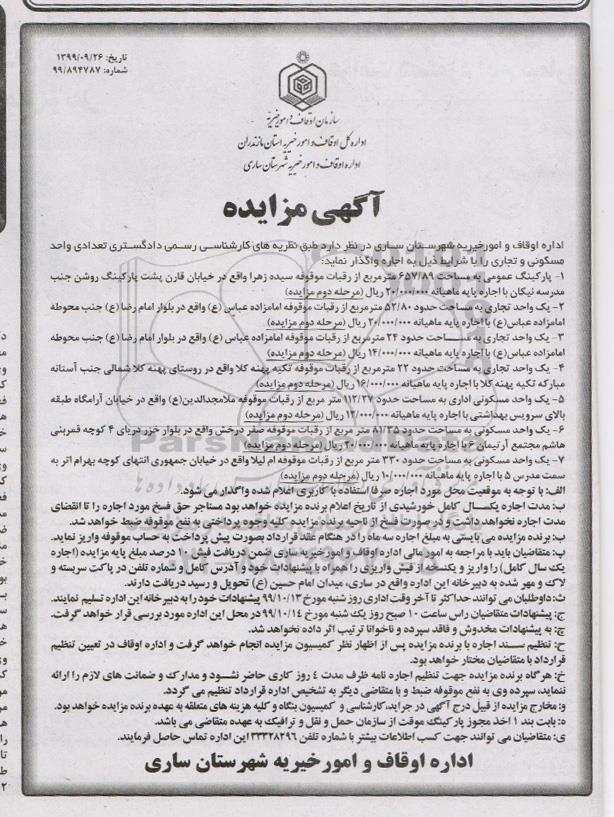 تاریخ: ۱۳۹۹/۰۹/۲۶
شماره: ۹۹/۸۹۴۷۸۷
سازمان اوقاف و امور خیریه
اداره کل اوقاف و امور خیریه استان مازندران
اداره اوقاف و امور خیریه شهرستان ساری
آگهی مزایده
اداره اوقاف و امورخیریه شهرستان ساری در نظر دارد طبق نظریه های کارشناسی رسمی دادگستری تعدادی واحد
مسکونی و تجاری را با شرایط ذیل به اجاره واگذار نماید:
۱- پارکینگ عمومی به مساحت ۶۵۷/۸۹ مترمربع از رقبات موقوفه سیده زهرا واقع در خیابان قارن پشت پارکینگ روشن جنب
مدرسه نیکان با اجاره پایه ماهیانه ۲۰/۰۰۰/۰۰۰ ریال (مرحله دوم مزایده)
۲- یک واحد تجاری به مساحت حدود ۵۲/۸۰ مترمربع از رقبات موقوفه امامزاده عباس (ع) واقع در بلوار امام رضا (ع) جنب محوطه
امامزاده عباس(ع) با اجاره پایه ماهیانه ۲۰/۰۰۰/۰۰۰ ریال (مرحله دوم مزایده)
۳- یک واحد تجاری به مساحت حدود ۲۴ مترمربع از رقبات موقوفه امامزاده عباس (ع) واقع در بلوار امام رضا (ع) جنب محوطه
امامزاده عباس(ع) با اجاره پایه ماهیانه ۱۴/۰۰۰/۰۰۰ ریال (مرحله دوم مزایده)
۴- یک واحد تجاری به مساحت حدود ۲۲ مترمربع از رقبات موقوفه تکیه پهنه کلا واقع در روستای پهنه کلا شمالی جنب آستانه
مبارکه تکیه پهنه کلا با اجاره پایه ماهیانه ۱۶/۰۰۰/۰۰۰ ریال (مرحله دوم مزایده)
۵- یک واحد مسکونی اداری به مساحت حدود ۱۱۲/۳۲ متر مربع از رقبات موقوفه ملامجدالدین(ع) واقع در خیابان آرامگاه طبقه
بالای سرویس بهداشتی با اجاره پایه ماهیانه ۱۲/۰۰۰/۰۰۰ ریال (مرحله دوم مزایده)
۶- یک واحد مسکونی به مساحت حدود ۸۱/۲۵ متر مربع از رقبات موقوفه صفر درخش واقع در بلوار خزر دریای ۴ کوچه قمربنی
هاشم مجتمع آرتیمان ۶ با اجاره پایه ماهیانه ۲۰/۰۰۰/۰۰۰ ریال (مرحله دوم مزایده)
۷- یک واحد مسکونی به مساحت حدود ۳۳۰ متر مربع از رقبات موقوفه ام لیلا واقع در خیابان جمهوری انتهای کوچه بهرام اتر به
سمت مدرس ۵ با اجاره پایه ماهیانه ۱۰/۰۰۰/۰۰۰ ریال (مرحله دوم مزایده)
الف: با توجه به موقعیت محل مورد اجاره صرفا استفاده با کاربری اعلام شده واگذار می شود.
ب: مدت اجاره یکسال کامل خورشیدی از تاریخ اعلام برنده مزایده خواهد بود مستاجر حق فسخ مورد اجاره را تا انقضای
مدت اجاره نخواهد داشت و در صورت فسخ از ناحیه برنده مزایده کلیه وجوه پرداختی به نفع موقوفه ضبط خواهد شد.
ب: برنده مزایده می بایستی به مبلغ اجاره سه ماه را در هنگام عقد قرارداد بصورت پیش پرداخت به حساب موقوفه واریز نماید.
پ: متقاضیان باید با مراجعه به امور مالی اداره اوقاف و امورخیریه ساری ضمن دریافت فیش ۱۰ درصد مبلغ پایه مزایده (اجاره
یک سال کامل) را واریز و یکنسخه از فیش واریزی را همراه با پیشنهادات خود و آدرس کامل و شماره تلفن در پاکت سربسته و
لاک و مهر شده به دبیرخانه این اداره واقع در ساری، میدان امام حسین (ع) تحویل و رسید دریافت دارند.
ث: داوطلبان می توانند حداکثر تا آخر وقت اداری روز شنبه مورخ ۹۹/۱۰/۱۳ پیشنهادات خود را به دبیرخانه این اداره تسلیم نمایند.
ج: پیشنهادات متقاضیان راس ساعت ۱۰ صبح روز یک شنبه مورخ ۹۹/۱۰/۱۴ در محل این اداره مورد بررسی قرار خواهد گرفت.
چ: به پیشنهادات مخدوش و فاقد سپرده و ناخوانا ترتیب اثر داده نخواهد شد.
ح: تنظیم سند اجاره با برنده مزایده پس از اظهار نظر کمیسیون مزایده انجام خواهد گرفت و اداره اوقاف در تعیین تنظیم
قرارداد با متقاضیان مختار خواهد بود.
خ: هرگاه برنده مزایده جهت تنظیم اجاره نامه ظرف مدت ۴ روز کاری حاضر نشود و مدارک و ضمانت های لازم را ارائه
ننماید، سپرده وی به نفع موقوفه ضبط و با متقاضی دیگر به تشخیص اداره قرارداد تنظیم می گردد.
و: مخارج مزایده از قبیل درج آگهی در جراید، کارشناسی و کمیسیون بنگاه و کلیه هزینه های متعلقه به عهده برنده مزایده خواهد بود.
ه: بابت بند ۱ اخذ مجوز پارکینگ موقت از سازمان حمل و نقل و ترافیک به عهده متقاضی می باشد.
ی: متقاضیان می توانند جهت کسب اطلاعات بیشتر با شماره تلفن ۳۳۳۲۸۲۹۶ این اداره تماس حاصل فرمایند.
اداره اوقاف و امور خیریه شهرستان ساری